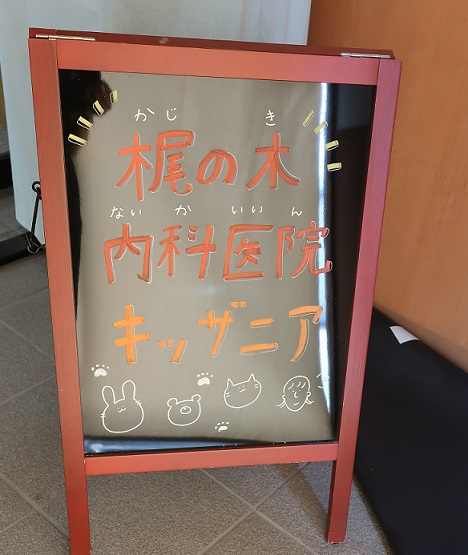 かじ き
梶の木
ない か いいん
内科医院
キッザニア